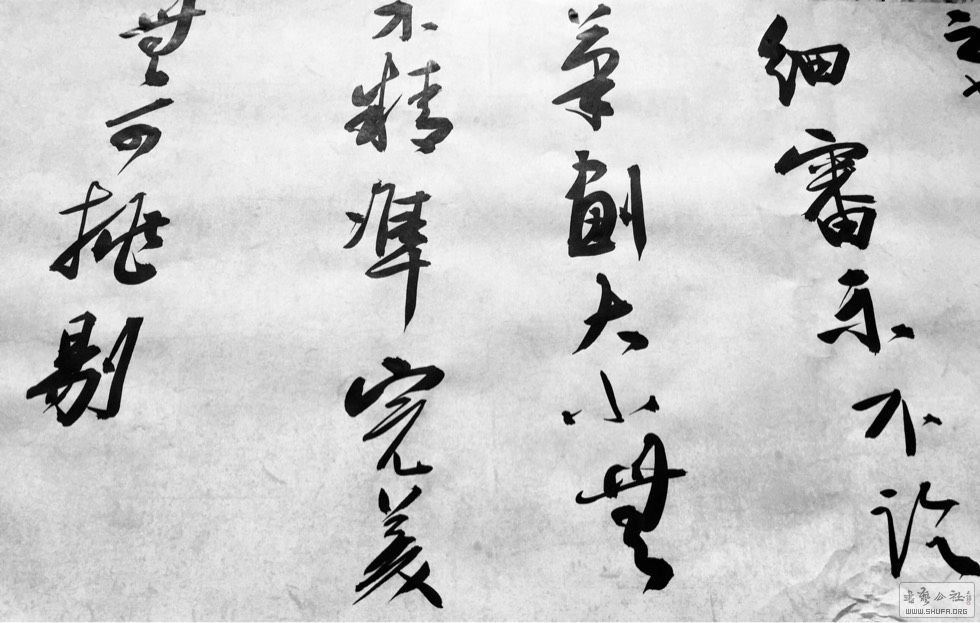 细審示不论
筆劃大小無
不精準完美
無可挑剔
書藝公社
WWW.SHUFA.ORG